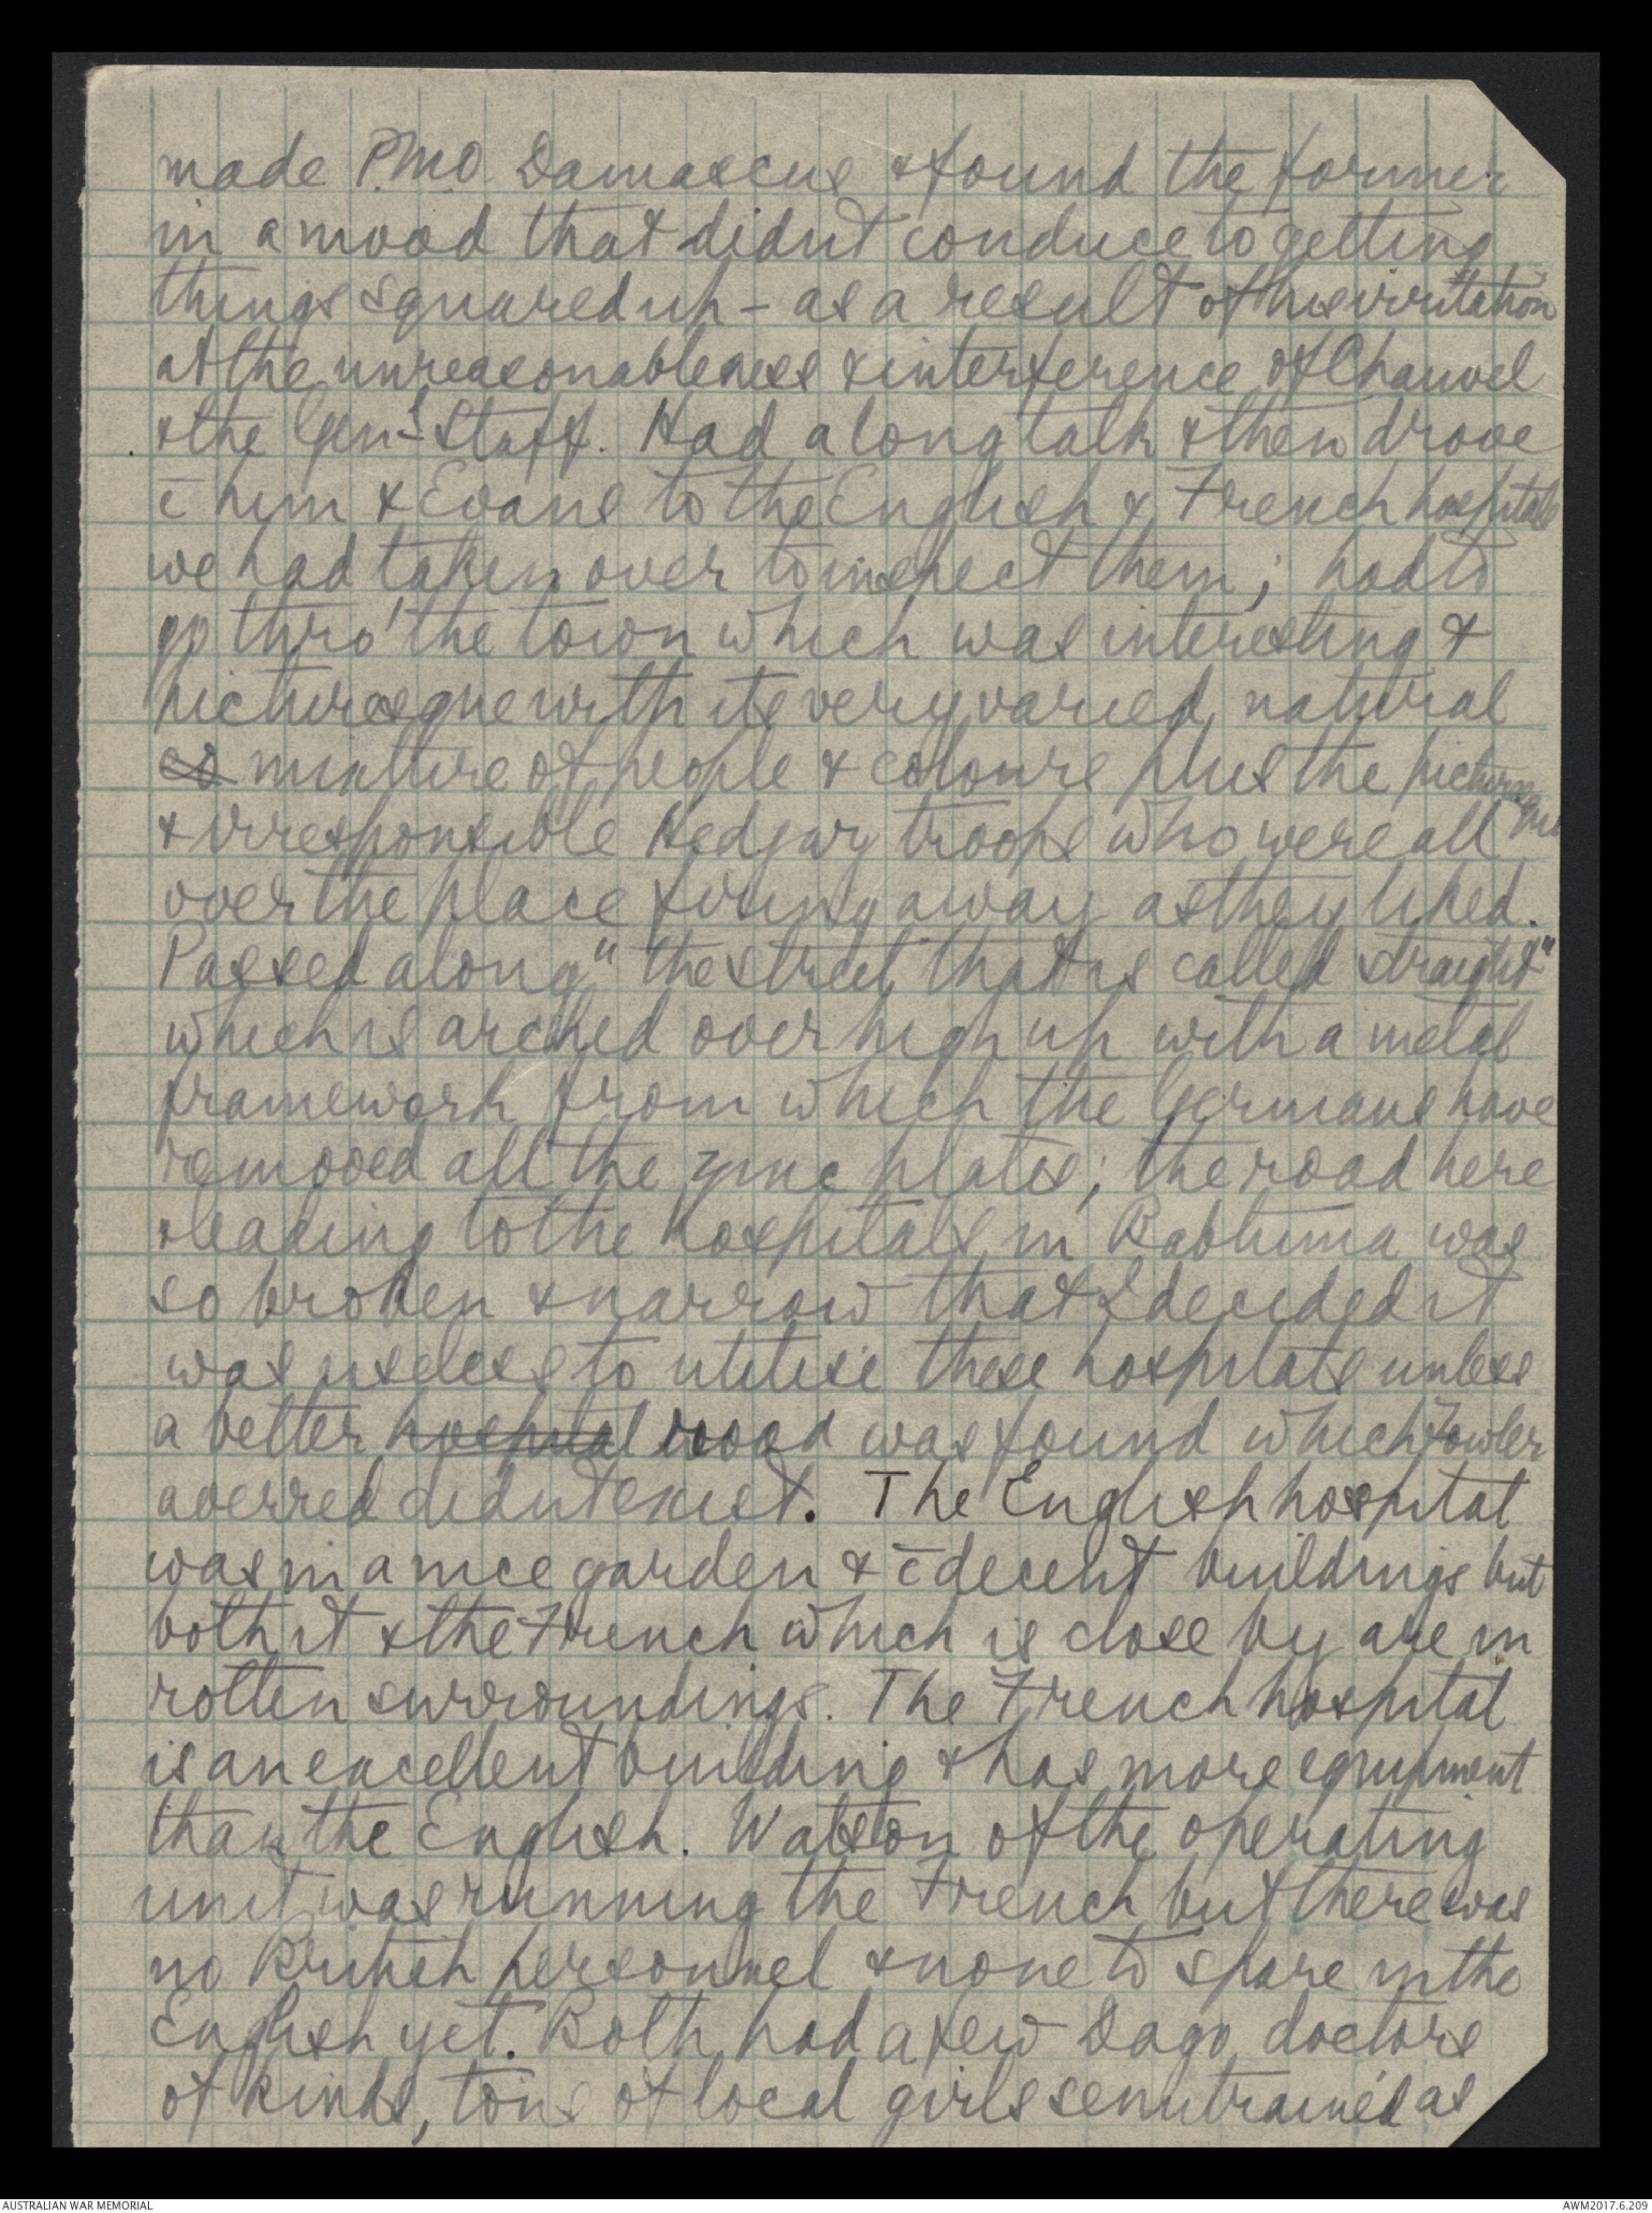 made P.M.O. Damascus & found the former
in a mood that didnt conduce to getting
things squared up - as a result of his irritation
at the unreasonableness & interference of Chauvel
& the Genl Staff. Had a long talk & then drove
c̄ him & Evans to the English & French hospitals
we had taken over to inspect them; had to
go thro' the town which was interesting &
picturesque with its very varied, natural
co mixture of people & colours plus the picturesque
& irresponsible Hedjaz troops who were all
over the place firing away as they liked.
Passed along "the street that is called straight"
which is arched over high up with a metal
framework from which the Germans have
removed all the zinc plates; the road here
& leading to the hospitals in Babtuma was
so broken & narrow that I decided it
was useless to utilise these hospitals unless
a better hospital road was found which Fowler
averred didnt exist. The English hospital
was in a nice garden & c̄ decent buildings but
both it & the French which is close by are in
rotten surroundings. The French hospital
is an excellent building & has more equipment
than the English. Watson of the operating
unit was running the French but there was
no British personnel & none to spare in the
English yet. Both had a few Dago doctors
of kinds, tons of local girls semitrained as
AUSTRALIAN WAR MEMORIAL
AWM2017.6.209